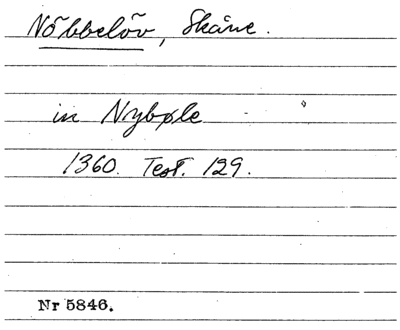 Nöbbelöv, Skåne.
in Nybøle
1360. Test. 129.
Nr 5846.